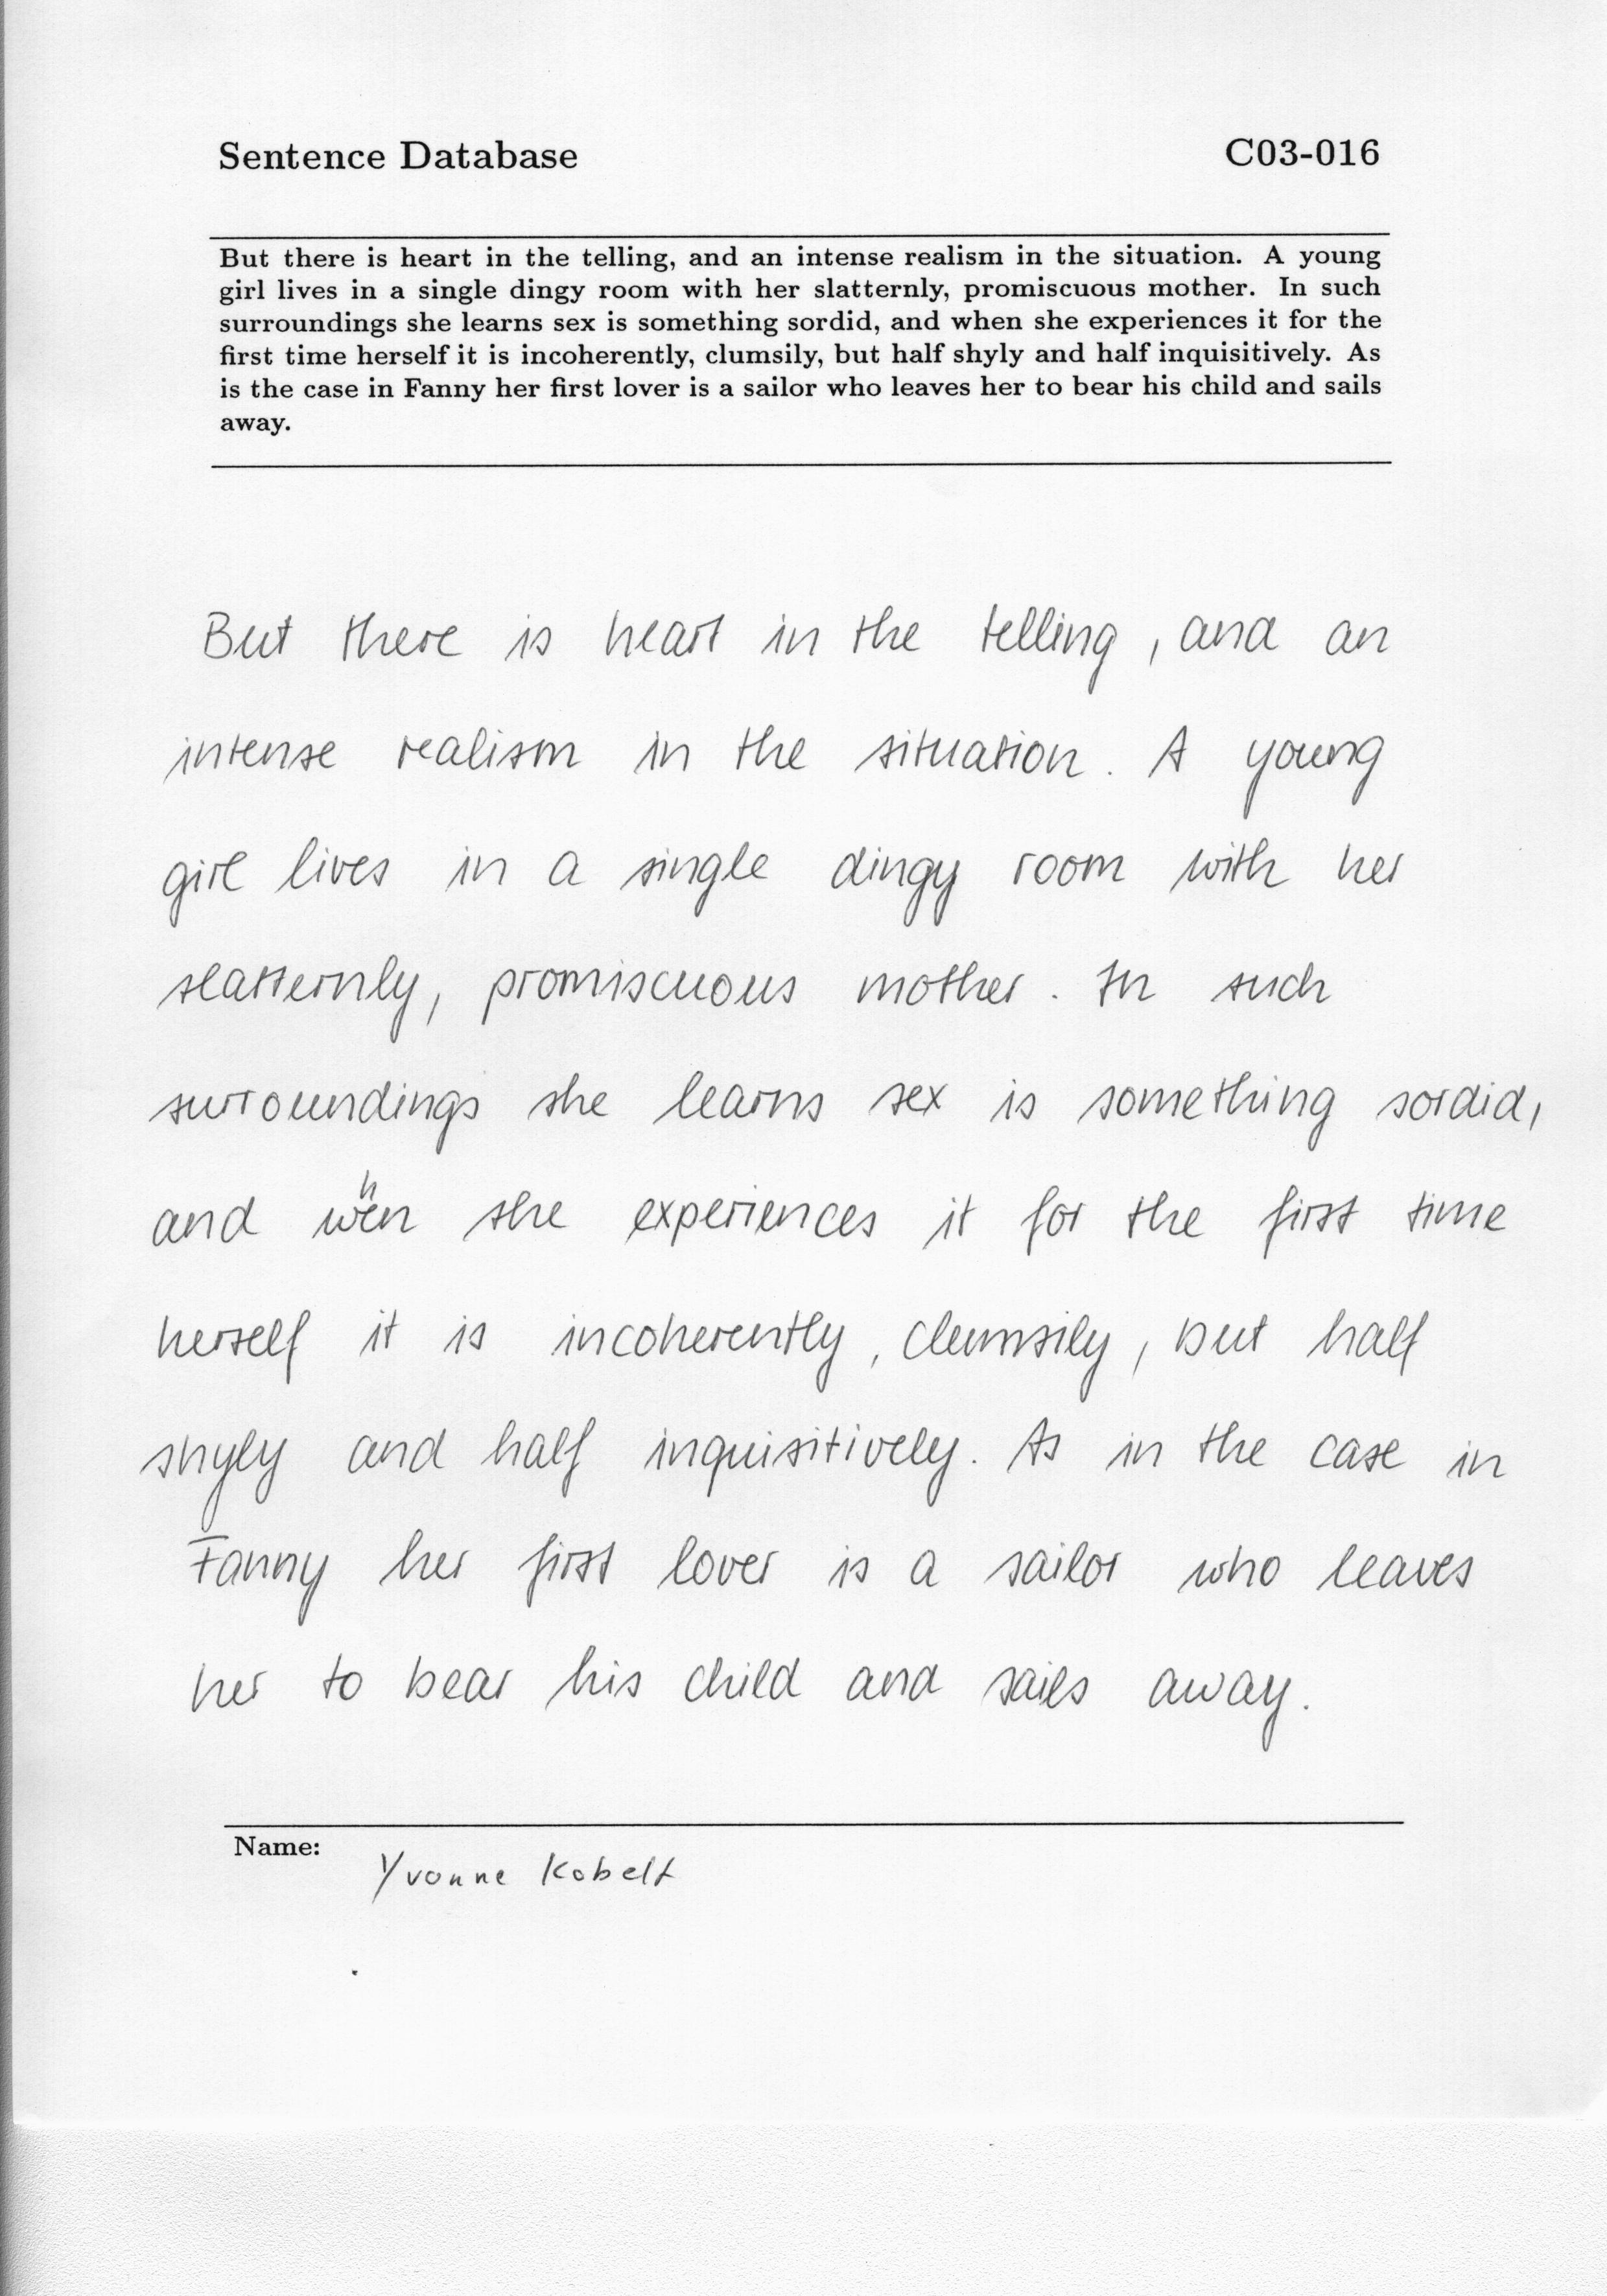 Sentence Database C03-016
But there is heart in the telling, and an intense realism in the situation. A young
girl lives in a single dingy room with her slatternly, promiscuous mother. In such
surroundings she learns sex is something sordid, and when she experiences it for the
first time herself it is incoherently, clumsily, but half shyly and half inquisitively. As
is the case in Fanny her first lover is a sailor who leaves her to bear his child and sails
away.
But there is heart in the telling, and an
intense realism in the situation. A young
girl lives in a single dingy room with her
slatternly, promiscuous mother. In such
surroundings she learns sex is something sordid,
and when she experiences it for the first time
herself it is incoherently, clumsily, but half
shyly and half inquisitively. As in the case in
Fanny her first lover is a sailor who leaves
her to bear his child and sails away.
Name: Yvonne Kobelt